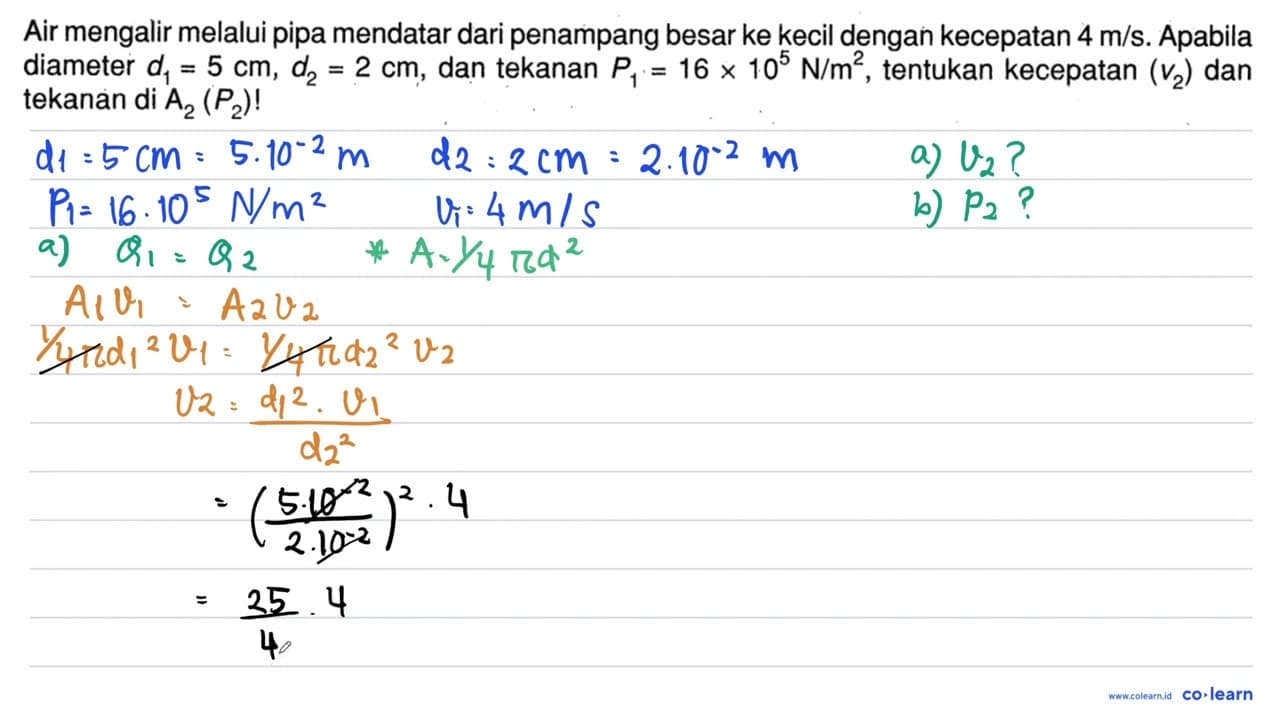 Air mengalir melalui pipa mendatar dari penampang besar ke kecil dengan kecepatan 4 m/s. Apabila
diameter d₁ = 5 cm, d₂ = 2 cm, dan tekanan P₁ = 16 × 10⁵ N/m², tentukan kecepatan (v₂) dan
tekanan di A₂ (P₂)!
d1 = 5 cm = 5.10⁻² m d2 = 2 cm = 2.10⁻² m a) v₂?
P1 = 16.10⁵ N/m² v₁ = 4 m/s b) P₂?
a) Q₁ = Q₂ * A = 1/4 πd²
A₁v₁ = A₂v₂
1/4 πd₁² v₁ = 1/4 πd₂² v₂
v₂ = d₁². v₁
d₂²
= (5.10⁻²
2.10⁻²)² . 4
= 25 . 4
4
www.colearn.id co·learn